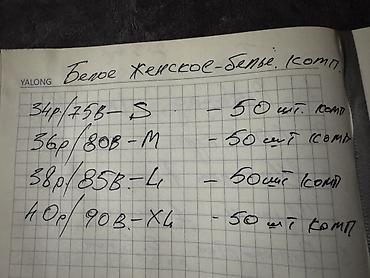 YALONG
Белое женское-белье. комп.
34р/75В-S - 50 шт. комп
36р/80В-M - 50 шт комп
38р/85В-L - 50 шт комп
40р/90В.-XL - 50 шт комп